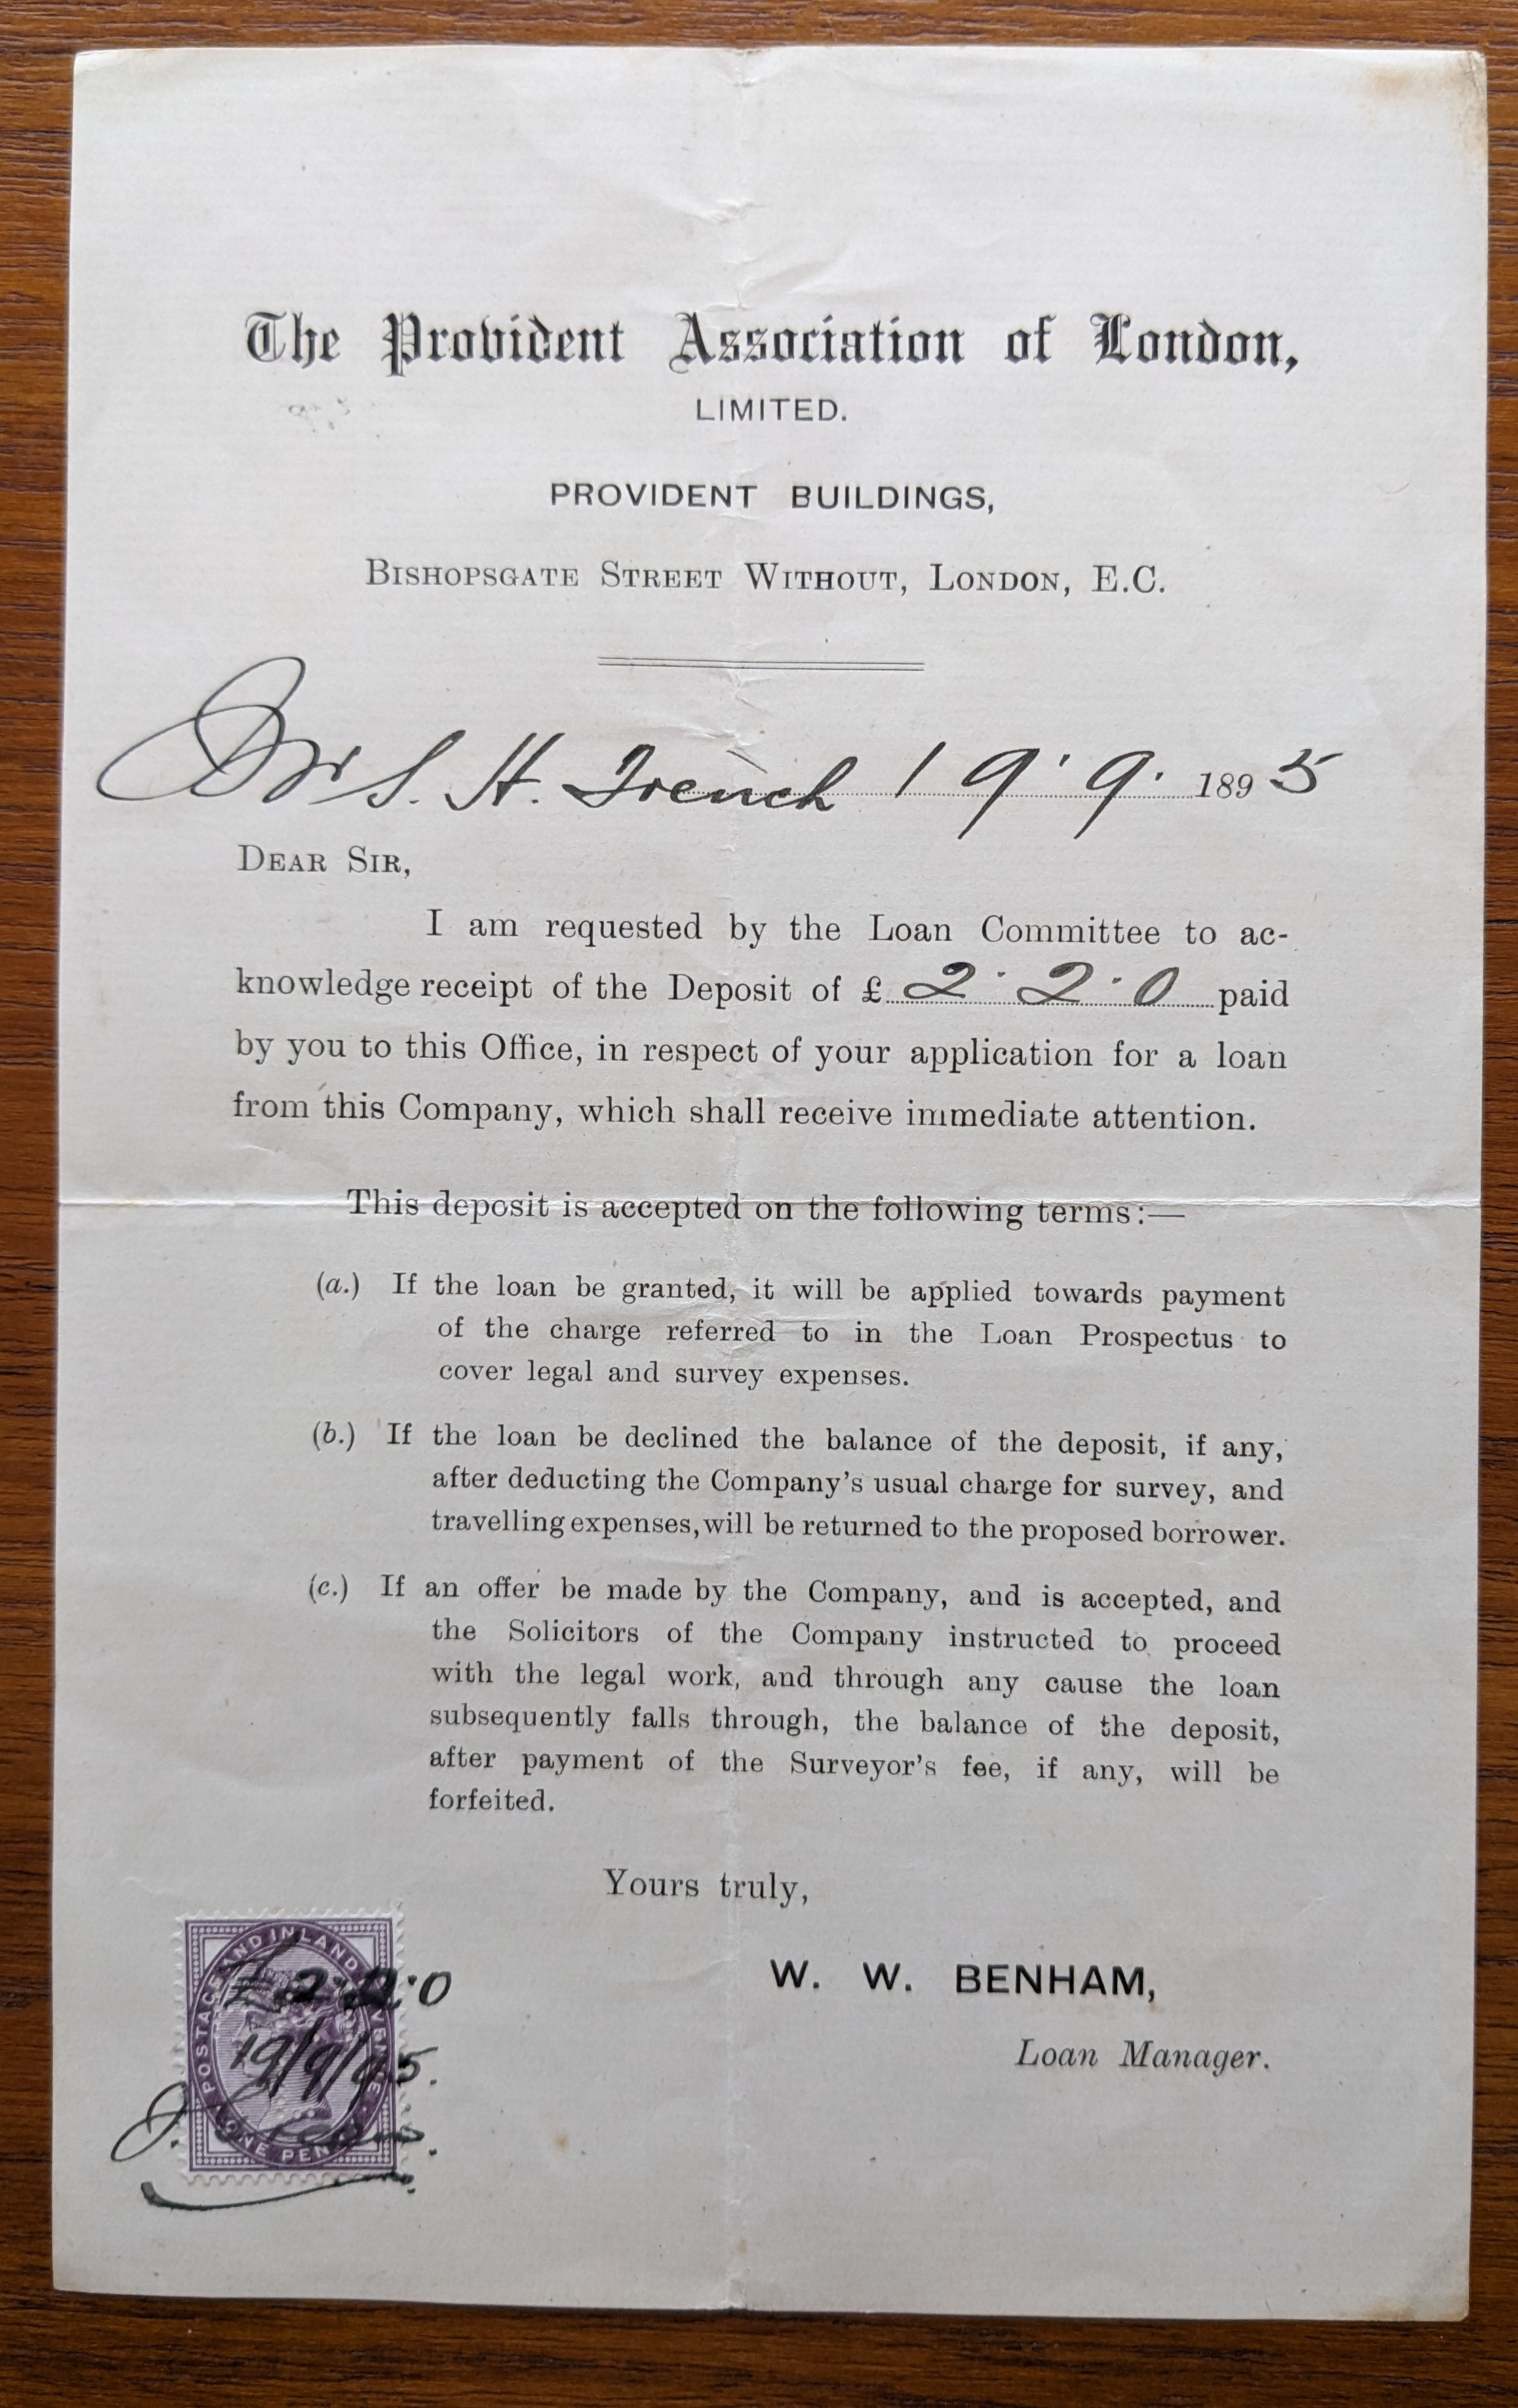 The Provident Association of London,
LIMITED.
PROVIDENT BUILDINGS,
BISHOPSGATE STREET WITHOUT, LONDON, E.C.
Mr S. H. French 19·9·1895
DEAR SIR,
I am requested by the Loan Committee to ac-
knowledge receipt of the Deposit of £ 2·2·0 paid
by you to this Office, in respect of your application for a loan
from this Company, which shall receive immediate attention.
This deposit is accepted on the following terms:—
(a.) If the loan be granted, it will be applied towards payment
of the charge referred to in the Loan Prospectus to
cover legal and survey expenses.
(b.) If the loan be declined the balance of the deposit, if any,
after deducting the Company's usual charge for survey, and
travelling expenses, will be returned to the proposed borrower.
(c.) If an offer be made by the Company, and is accepted, and
the Solicitors of the Company instructed to proceed
with the legal work, and through any cause the loan
subsequently falls through, the balance of the deposit,
after payment of the Surveyor's fee, if any, will be
forfeited.
Yours truly,
W. W. BENHAM,
Loan Manager.
POSTAGE AND INLAND REVENUE
ONE PENNY
£2·2·0
19/9/95.
J.